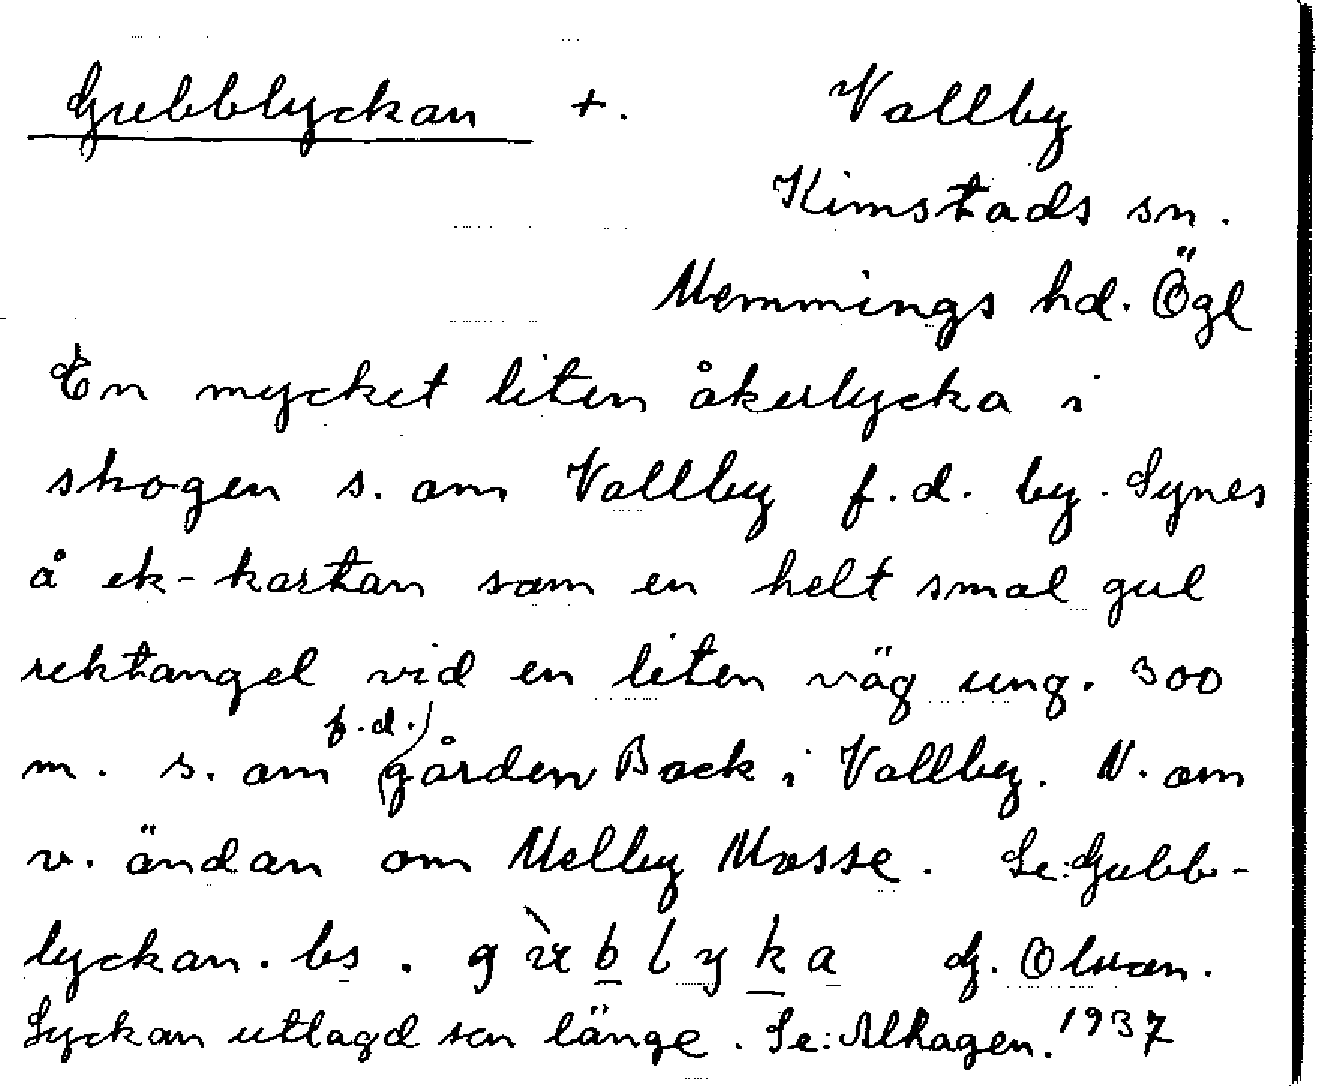 Gubblyckan +. Vallby
Kimstads sn.
Memmings hd. Ögl
En mycket liten åkerlycka i
skogen s. om Vallby f.d. by. Synes
å ek-kartan som en helt smal gul
rektangel vid en liten väg ung. 300
f.d.
m. s. om gården Back i Vallby. N. om
v. ändan om Melby Mosse. Se: Gubb-
lyckan. bs. g b l y k a G.
Lyckan utlagd sen länge. Se: Alhagen. 1937